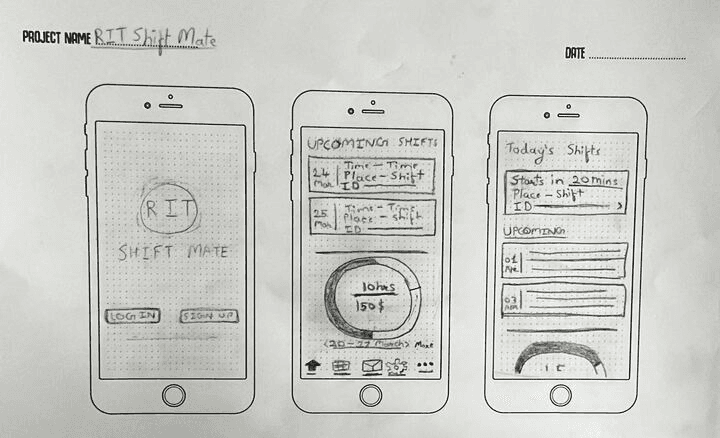 PROJECT NAME RIT Shift Mate
DATE
RIT
SHIFT MATE
LOG IN
SIGN UP
UPCOMING SHIFTS
24 Mar
Time - Time
Place - Shift
ID
25 Mar
Time - Time
Place - Shift
ID
10 hrs
150 $
<20 - 27 March> More
Today's Shifts
Starts in 20 mins
Place - Shift
ID >
UPCOMING
01 Apr
03 Apr